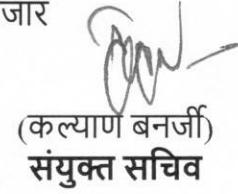 जार
(कल्याण बनर्जी)
संयुक्त सचिव